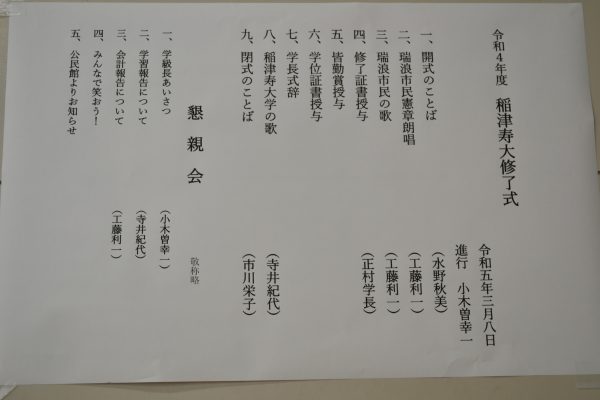 令和４年度　稲津寿大修了式
令和五年三月八日
進行　小木曽幸一
一、開式のことば　（水野秋美）
二、瑞浪市民憲章朗唱　（工藤利一）
三、瑞浪市民の歌　（工藤利一）
四、修了証書授与　（正村学長）
五、皆勤賞授与
六、学位証書授与
七、学長式辞
八、稲津寿大学の歌　（寺井紀代）
九、閉式のことば　（市川栄子）
懇親会
敬称略
一、学級長あいさつ　（小木曽幸一）
二、学習報告について　（寺井紀代）
三、会計報告について　（工藤利一）
四、みんなで笑おう！
五、公民館よりお知らせ